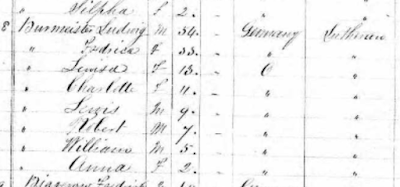 " Silpha F 2. – " "
8 Burmeister Ludwig M 34. – Germany Lutheran
" Fredrica F 33. – " "
" Louisa F 13. – O "
" Charlotte F 11. – " "
" Lewis M 9. – " "
" Robert M 7. – " "
" William M 5. – " "
" Anna F 2. – " "
Fredrick